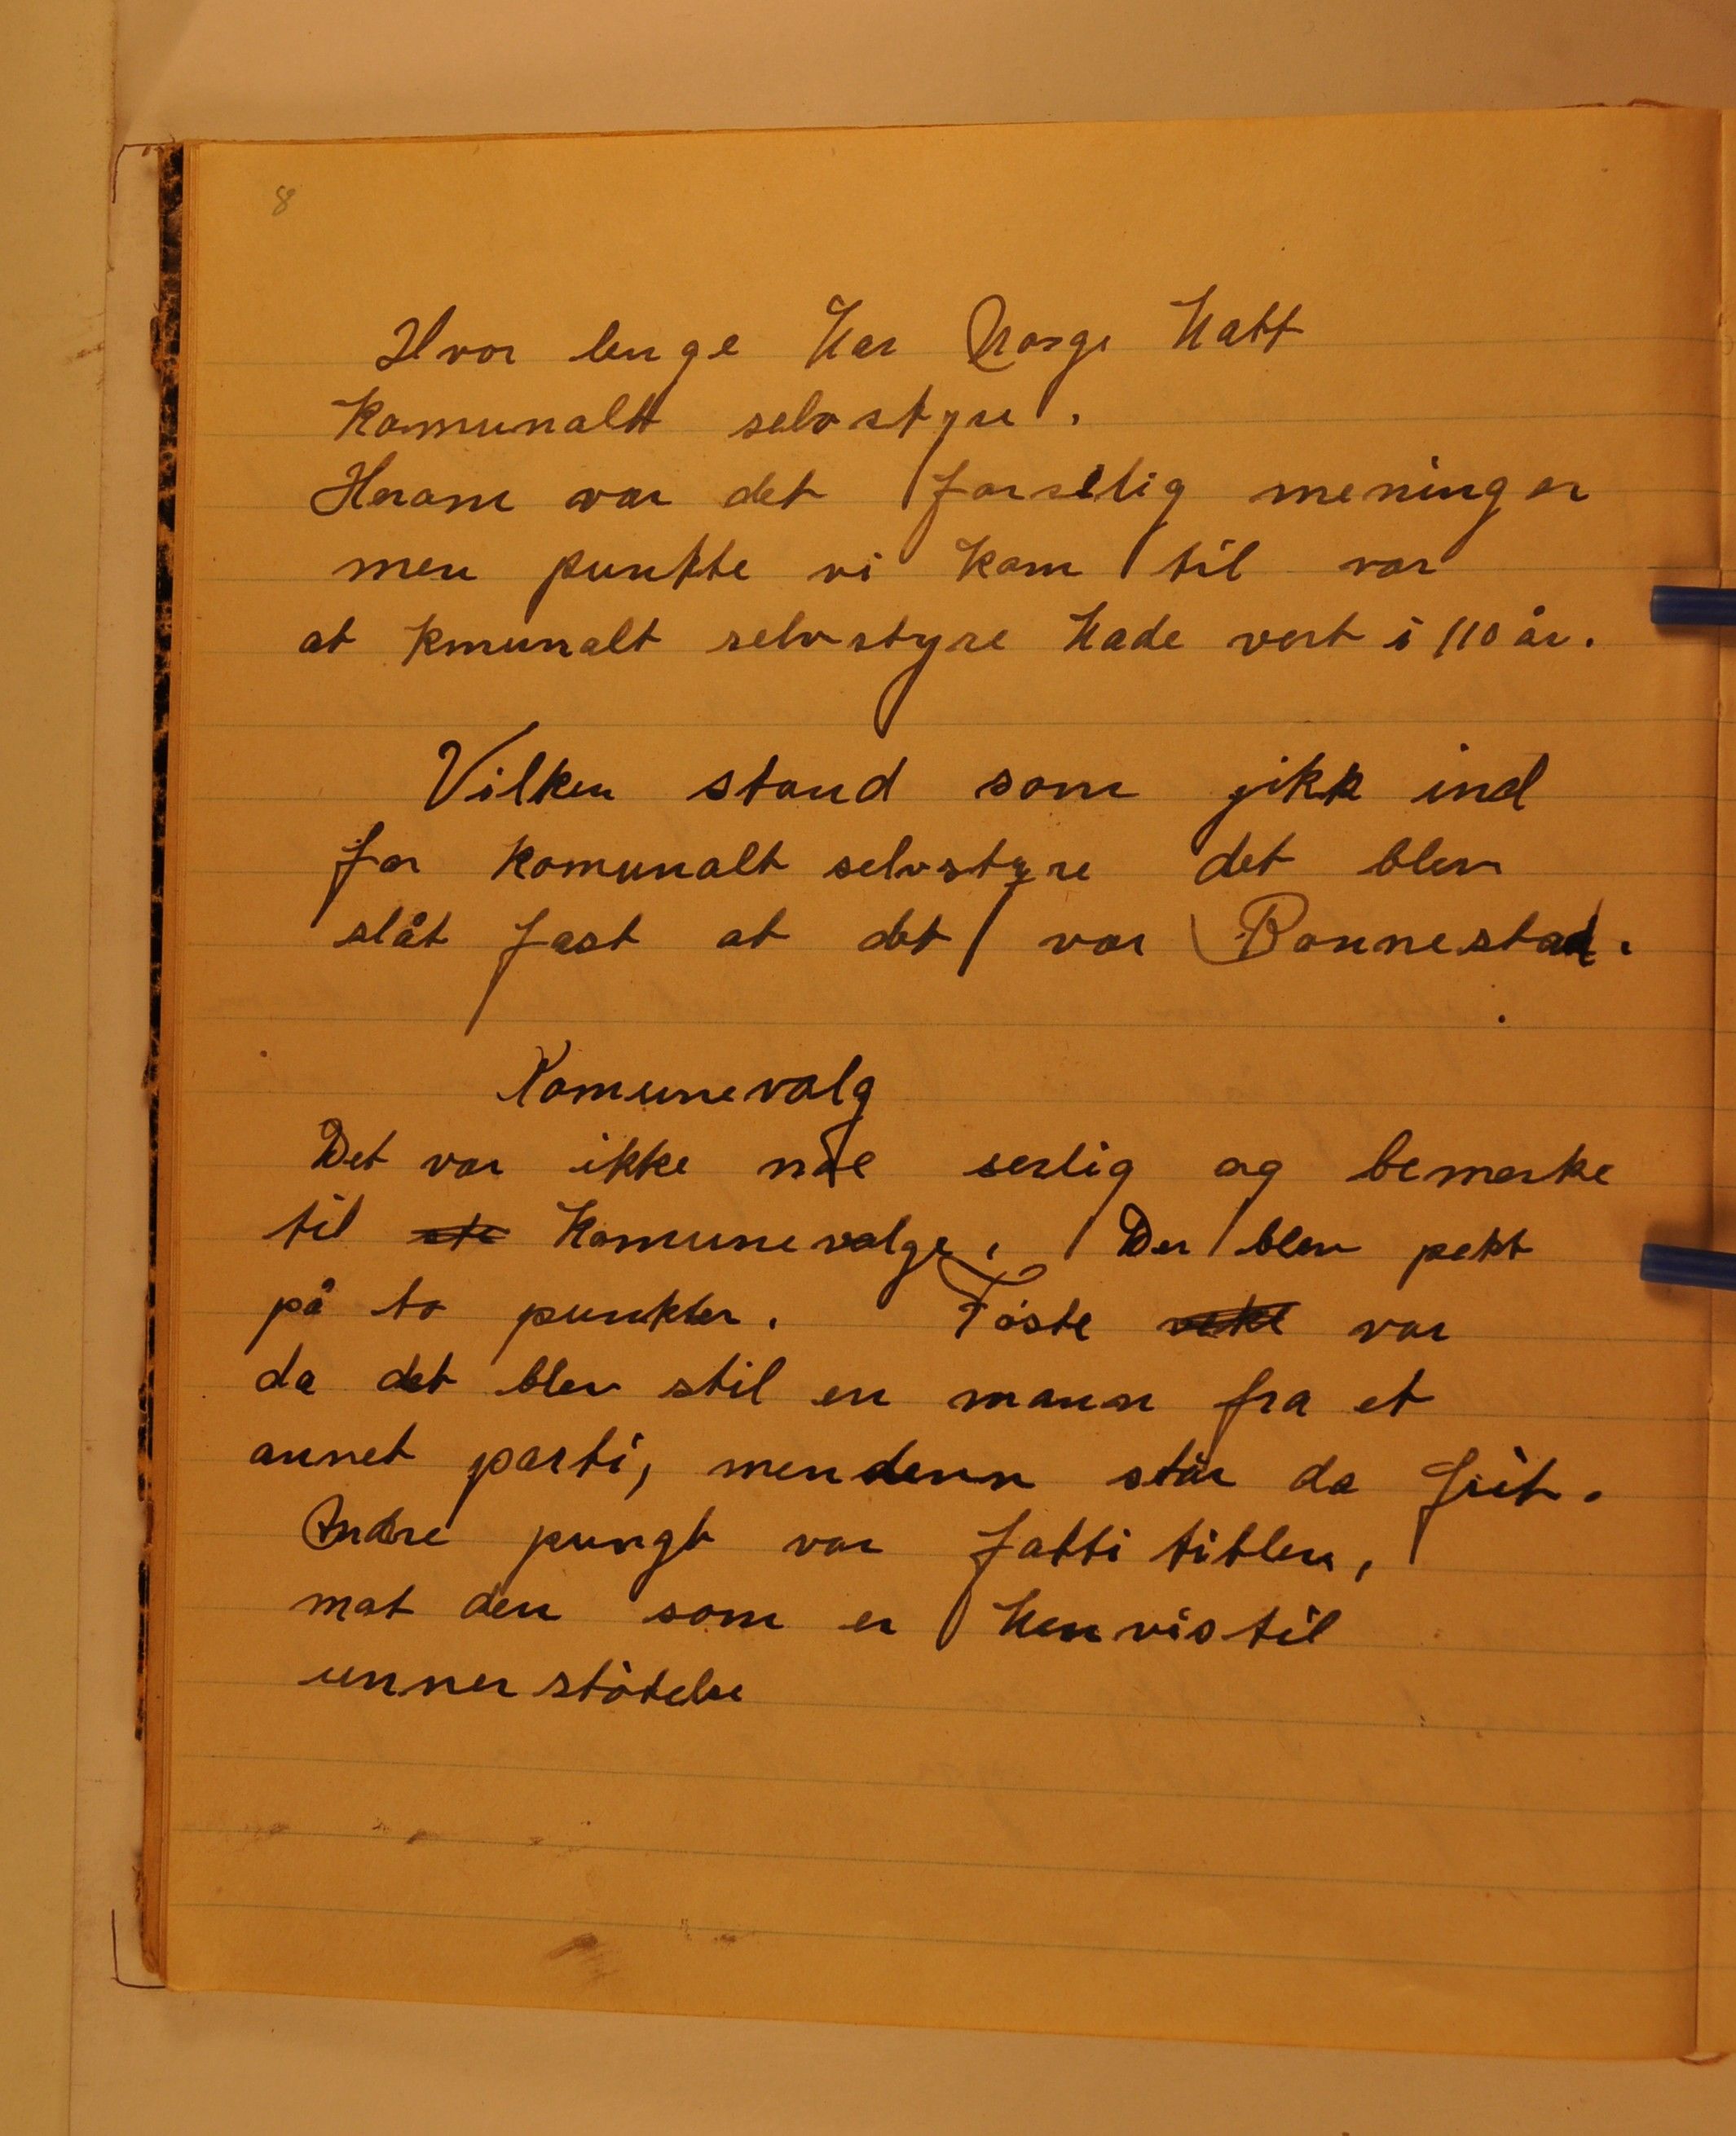 8
Hvor lenge har Norge hatt
komunalt selvstyre.
Herom var det forselig meninger
men punkte vi kom til var
at kmunalt selvstyre hade vert i 110 år.
Vilken stand som gikk ind
for komunalt selvstyre det blev
slåt fast at det var Bonnestad.
Komunevalg
Det var ikke noe serlig og bemerke
til komunevalge. Der blev pekt
på to punkter. Föste var
da det blev stil en mann fra et
annet parti, men denn står da frit.
Andre pungt var fatti titlen,
mat den som er henvis til
unnerstötelse